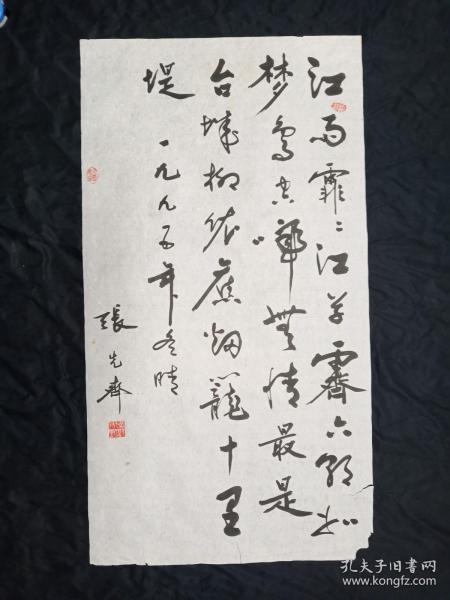 江雨霏〻江草霽六朝如
梦鸟空啼無情最是
台城柳依舊烟籠十里
堤 一九九五年冬晴
張先齊
孔夫子旧书网
www.kongfz.com